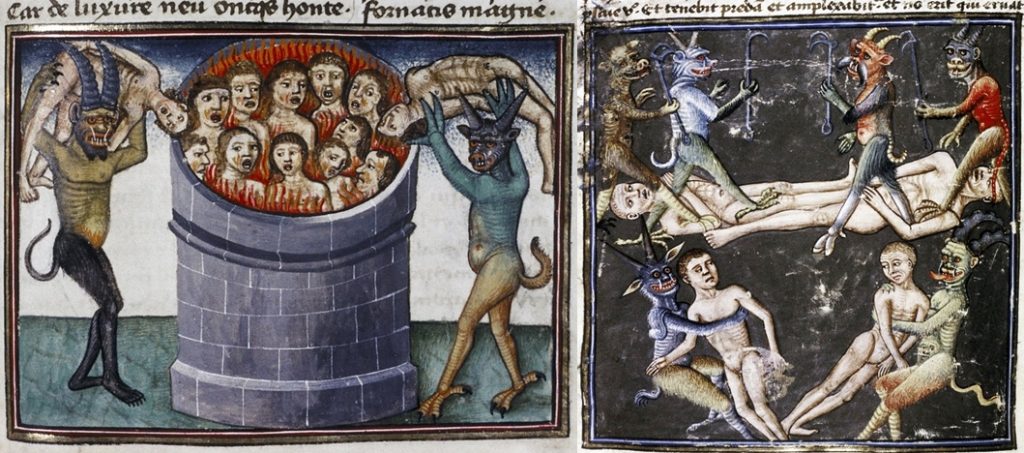 Car de luxure neu oncqs honte. fornacis magne.
Et tenebit predā et amplexabit. et nō erit qui eruat